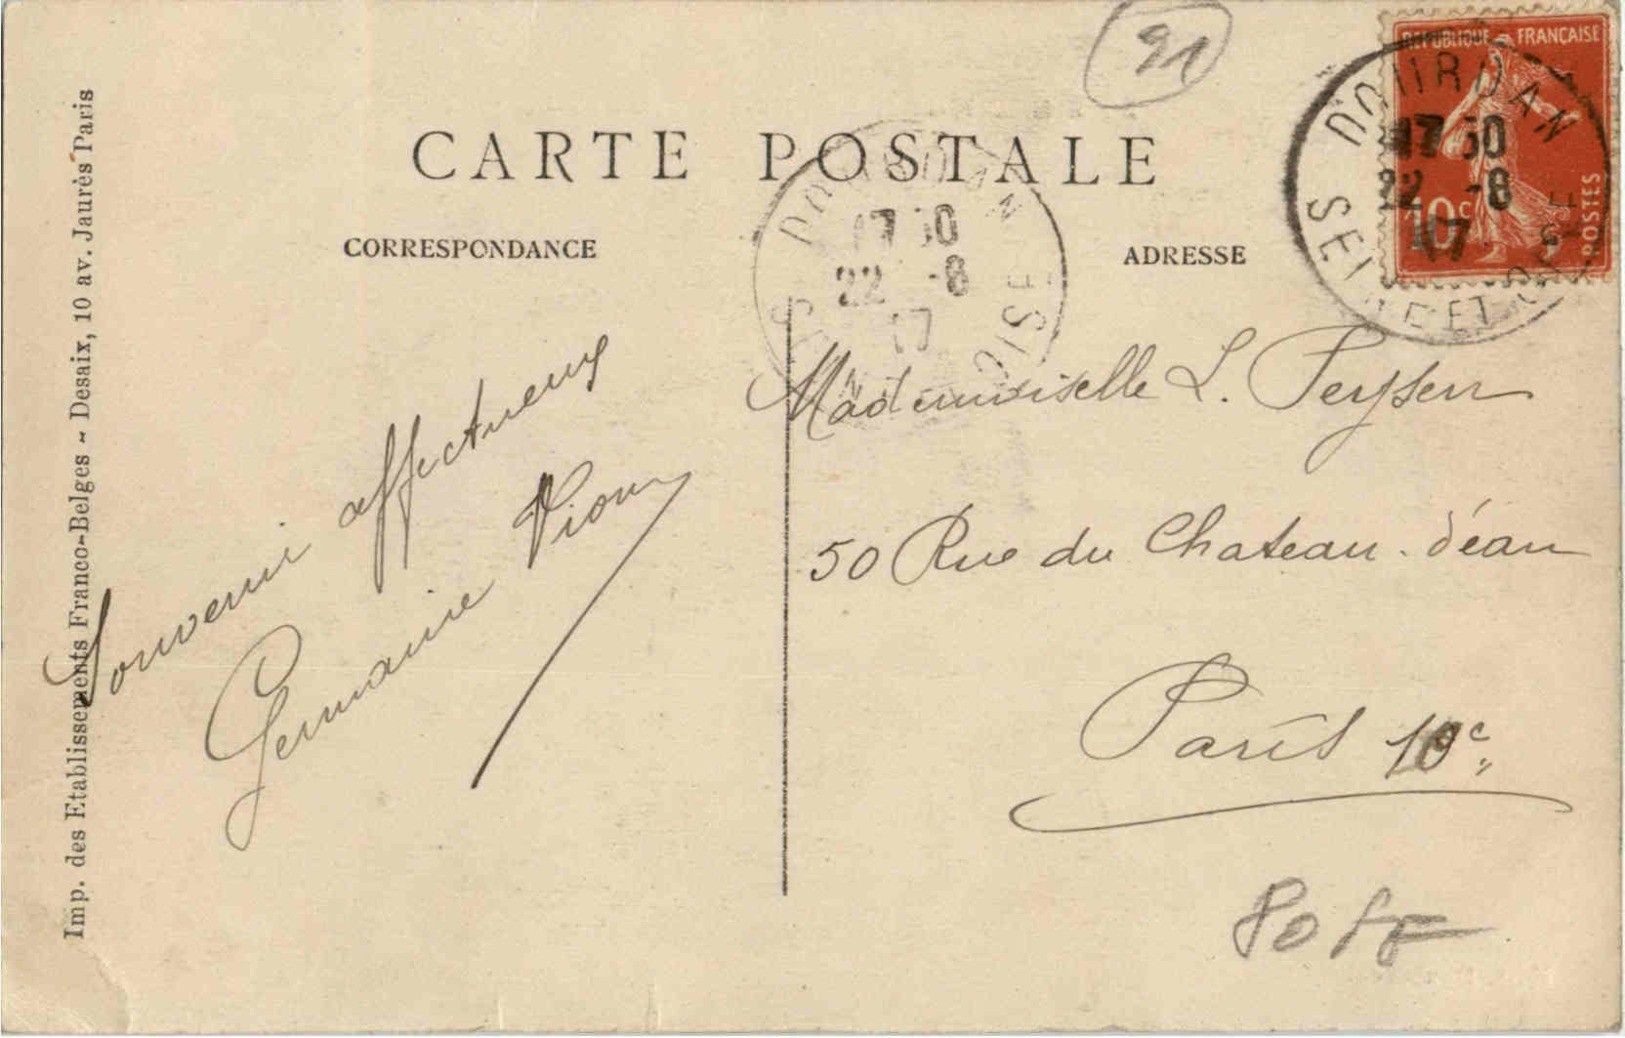 91
RÉPUBLIQUE FRANÇAISE
10c
POSTES
DOURDAN
17 30
22 -8
17
SEINE ET OISE
CARTE POSTALE
DOURDAN
17 30
22 -8
17
OISE
CORRESPONDANCE
ADRESSE
Souvenir affectueux
Germaine
Mademoiselle L.
50 Rue du Chateau d'éau
Paris 10e
Imp. des Etablissements Franco-Belges ~ Desaix, 10 av. Jaurès Paris